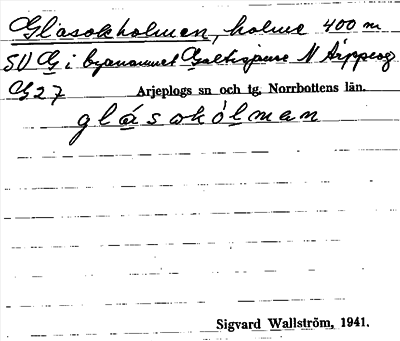 Glåsokholmen, holme 400 m
SV G i bynamnet Galtisjaure N Arjeplog
G 27 Arjeplogs sn och tg, Norrbottens län.
glåsokólman
Sigvard Wallström, 1941.